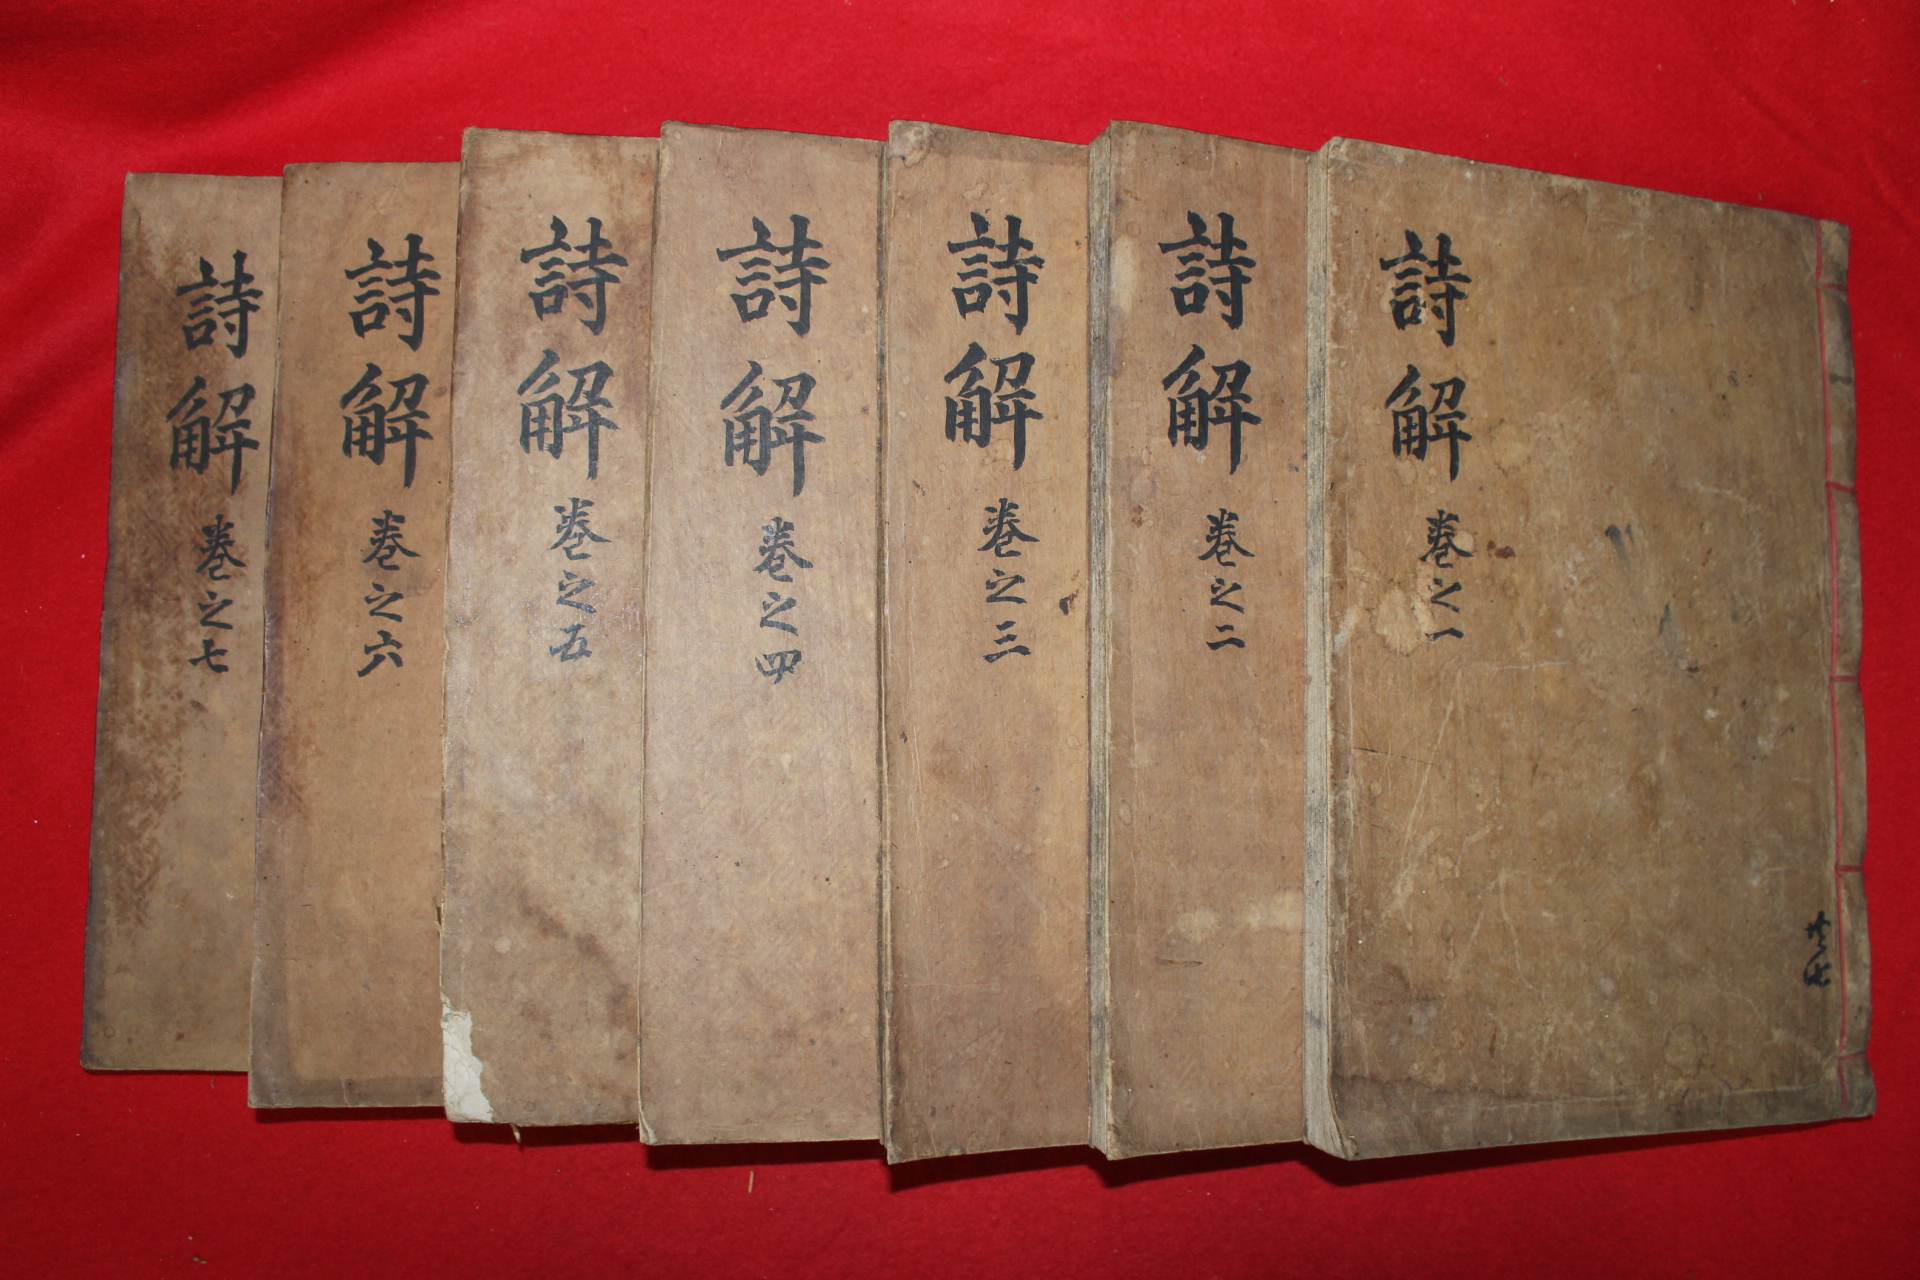 詩解 卷之一
詩解 卷之二
詩解 卷之三
詩解 卷之四
詩解 卷之五
詩解 卷之六
詩解 卷之七
共七